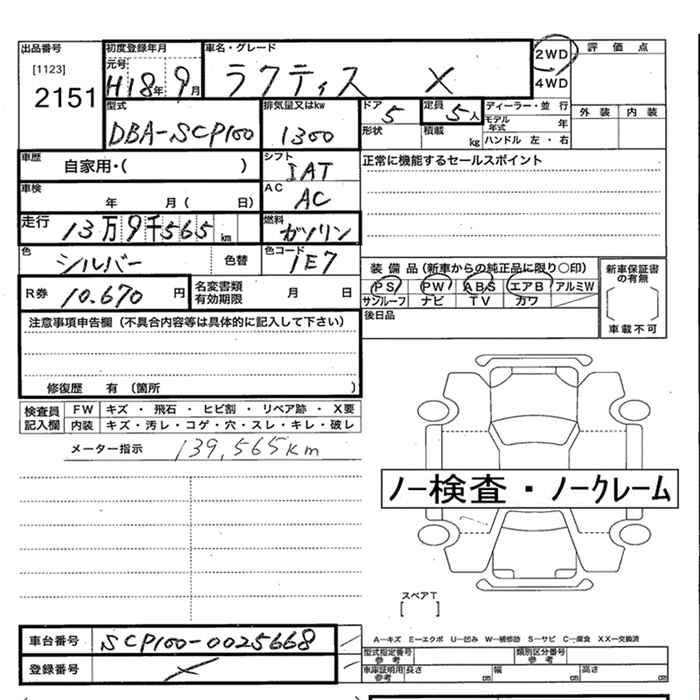 出品番号 初度登録年月 車名・グレード 2WD 評価点
[1123] 元号 4WD
2151 H18年 9月 ラクティス X
型式 排気量又はkw ドア 定員 ディーラー・並行 外装 内装
DBA-SCP100 1300 5 5人 モデル年式 年
形状 積載 kg ハンドル 左・右
車歴 自家用・( ) シフト IAT 正常に機能するセールスポイント
車検 年 月( 日) AC AC
走行 13万9千565km 燃料 ガソリン
色 シルバー 色替 色コード 1E7 装備品(新車からの純正品に限り○印) 新車保証書の有無
R券 10.670円 名変書類有効期限 月 日 PS PW ABS エアB アルミW
サンルーフ ナビ TV カワ [ ]
注意事項申告欄(不具合内容等は具体的に記入して下さい) 後日品 車載不可
修復歴 有 (箇所 )
検査員記入欄 FW キズ・飛石・ヒビ割・リペア跡・X要
内装 キズ・汚レ・コゲ・穴・スレ・キレ・破レ
メーター指示 139,565km
ノー検査・ノークレーム
スペアT
[ ]
車台番号 SCP100-0025668 A―キズ E―エクボ U―凹み W―補修跡 S―サビ C―腐食 XX―交換済
型式指定番号 参考 類別区分番号 参考
登録番号 X 車庫証明用 参考 長さ cm 幅 cm 高さ cm